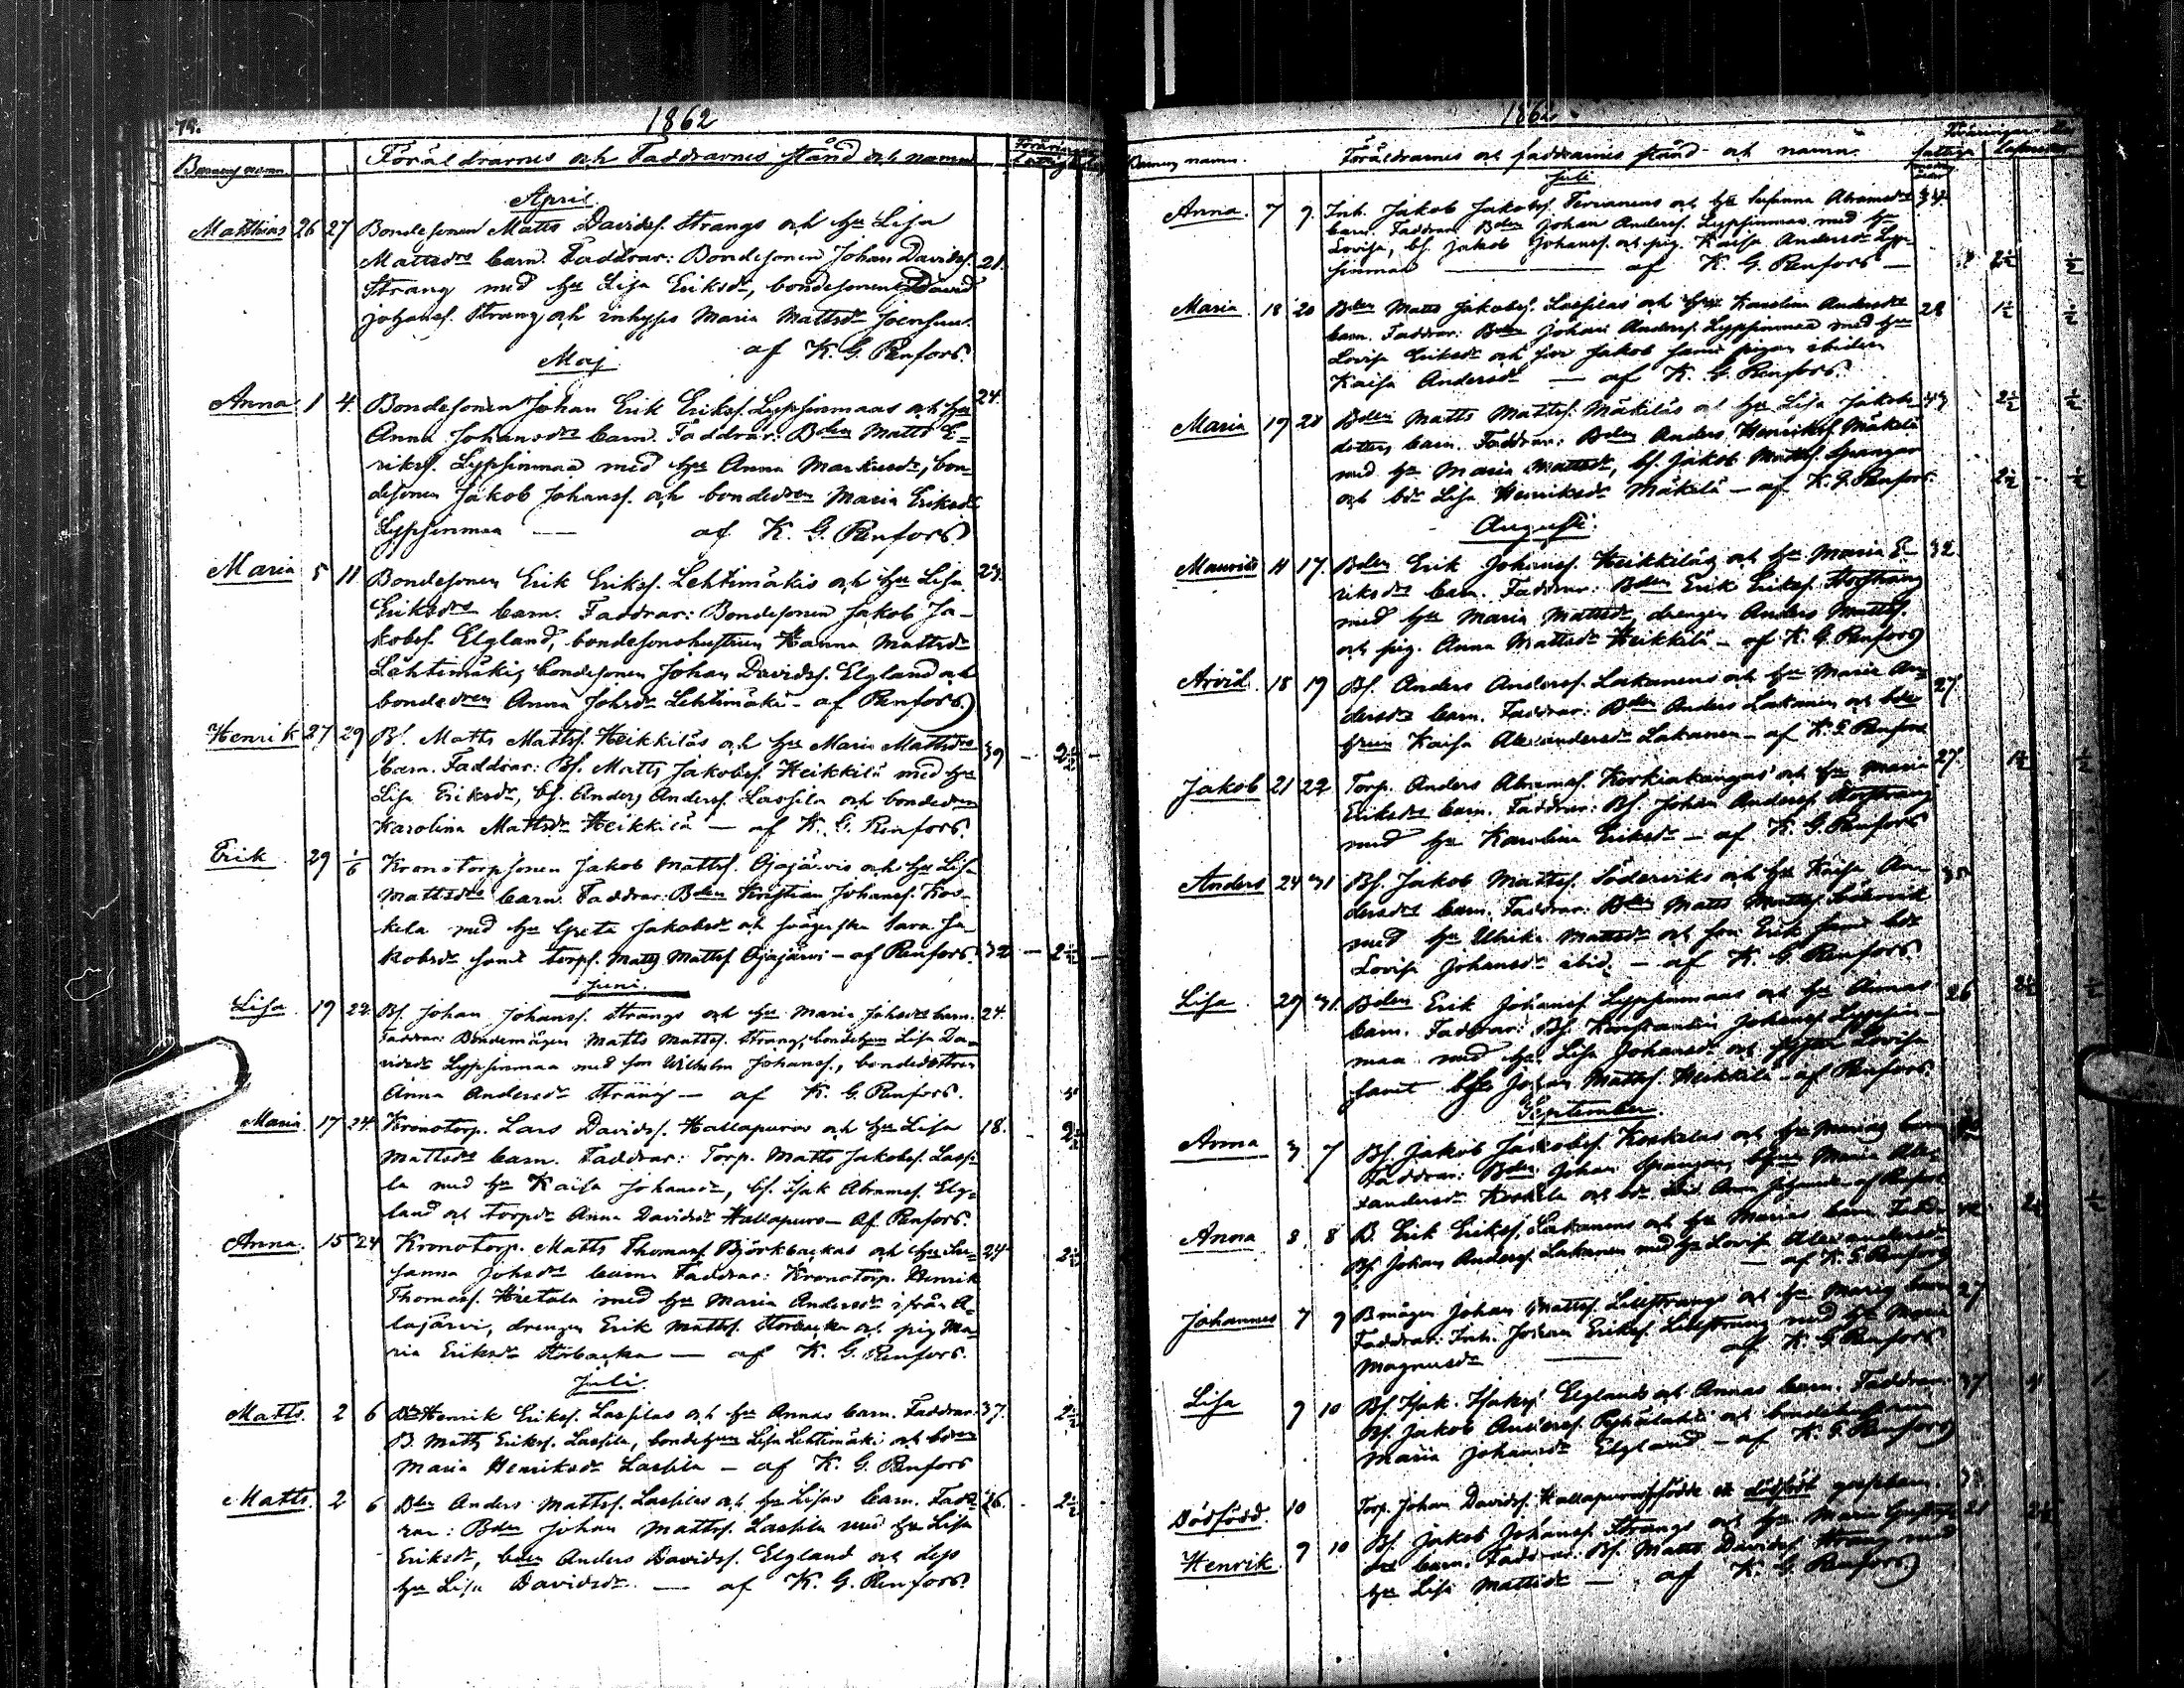 79.
1862
Barnens namn. Föräldrarnes och Faddrarnes stånd och namn
April.
Matthias 26 27 Bondesonen Matts Davidss. Strangs och hu Lisa
Mattsdrs barn. Faddrar: Bondesonen Johan Davidss. 21.
Strang med hu Lisa Eriksdr, bondesonen David
Johanss. Strang och inhyses Maria Mattsdr Joensuu.
af K. G. Renfors.
Maj
Anna 1 4. Bondesonen Johan Erik Erikss. Lypsinmaas och hu 24.
Anna Johansdrs barn. Faddrar: Bden Matts E-
rikss. Lypsinmaa med hu Anna Markusdr, bon-
desonen Jakob Johanss. och bondedren Maria Eriksdr
Lypsinmaa — af K. G. Renfors
Maria 5 11 Bondesonen Erik Erikss. Lehtimäkis och hu Lisa 23.
Eriksdrs barn. Faddrar: Bondesonen Jakob Ja-
kobss. Elgland, bondesonshustrun Hanna Mattsdr
Lehtimäki, bondesonen Johan Davidss. Elgland och
bondedren Anna Johsdr Lehtimäki - af Renfors
Henrik 27 29 Bs. Matts Mattss. Heikkiläs och hu Maria Mattsdrs 39 — 2½ —
barn. Faddrar: Bs. Matts Jakobss. Heikkilä med hu
Lisa Eriksdr, bs. Anders Anderss. Lassila och bondedren
Karolina Mattsdr Heikkilä — af K. G. Renfors.
Erik 29 1/6 Kronotorpsonen Jakob Mattss. Ojajärvis och hu Lisa
Mattsdrs barn. Faddrar: Bden Kristian Johanss. Kos-
kela med hu Greta Jakobsdr och svägerska Sara Ja-
kobsdr samt torps. Matts Mattss. Ojajärvi - af Renfors. 32 — 2½ —
Juni.
Lisa 19 22. Bs. Johan Johanss. Strangs och hu Maria Johsdrs barn. 24.
Faddrar: Bondemågen Matts Mattss. Strang, bondehun Lisa Da-
vidsdr Lypsinmaa med son Wilhelm Johanss., bondedottren
Anna Andersdr Strang — af K. G. Renfors.
Maria 17 24. Kronotorp. Lars Davidss. Hallapuros och hu Lisa 18. 2½
Mattsdrs barn. Faddrar: Torp. Matts Jakobss. Lassi-
la med hu Kaisa Johansdr, bs. Isak Abramss. Elg-
land och torpdr Anna Davidsdr Hallapuro - af Renfors.
Anna. 15 24 Kronotorp. Matts Thomass. Björkbackas och hu Su- 24 2½
sanna Johsdrs barn. Faddrar: Kronotorp. Henrik
Thomass. Hietala med hu Maria Andersdr ifrån A-
lajärvi, drengen Erik Mattss. Storbacka och pig. Ma-
ria Eriksdr Storbacka — af K. G. Renfors.
Juli.
Matts. 2 6 Bden Henrik Erikss. Lassilas och hu Annas barn. Faddrar: 37. 2½
B. Matts Erikss. Lassila, bondehun Lisa Lehtimäki och bdren
Maria Henriksdr Lassila — af K. G. Renfors
Matts. 2 6 Bden Anders Mattss. Lassilas och hu Lisas barn. Fadd- 26. 2½
rar: Bden Johan Mattss. Lassila med hu Lisa
Eriksdr, bden Anders Davidss. Elgland och dess
hu Lisa Davidsdr. — af K. G. Renfors
1862
Barnens namn. Föräldrarnes och faddrarnes stånd och namn.
Juli
Anna. 7 9. Inh. Jakob Jakobss. och hu Susanna Abramsdrs
barn. Faddrar: Bden Johan Anderss. Lypsinmaa med hu
Lovisa, bs. Jakob Johanss. och pig. Kaisa Andersdr Lyp-
sinmaa — af K. G. Renfors — 2½ ½
Maria 18 20 Bden Matts Jakobss. Lassilas och hu Karolina Andersdrs 28 1½ ½
barn. Faddrar: Bden Johan Anderss. Lypsinmaa med hu
Lovisa Eriksdr och son Jakob samt pigan ibidem
Kaisa Andersdr — af K. G. Renfors.
Maria 19 20 Bden Matts Mattss. Mäkiläs och hu Lisa Jakobs- 43 2½ ½
dotters barn. Faddrar: Bden Anders Henrikss. Mäkelä
med hu Maria Mattsdr, bs. Jakob Mattss. Spangar
och bdr Lisa Henriksdr Mäkelä — af K. G. Renfors. 2½ ½
Augusti.
Mauritz 11 17. Bden Erik Johanss. Heikkiläs och hu Maria E- 32
riksdrs barn. Faddrar: Bden Erik Erikss. Storstrang
med hu Maria Mattsdr, drengen Anders Mattss.
och pig. Anna Mattsdr Heikkilä - af K. G. Renfors
Arvid. 18 19 Bs. Anders Anderss. Lakanens och hu Maria An- 27
dersdrs barn. Faddrar: Bden Anders Lakanen och bde-
hrun Kaisa Alexandersdr Lakanen - af K. G. Renfors
Jakob 21 22 Torp. Anders Abramss. Korkiakangas och hu Maria 27. 1½ ½
Eriksdrs barn. Faddrar: Bs. Johan Anderss. Storstrang
med hu Karolina Eriksdr — af K. G. Renfors
Anders 24 31 Bs. Jakob Mattss. Söderviks och hu Kaisa An- 35
dersdrs barn. Faddrar: Bden Matts Mattss. Södervik
med hu Ulrika Mattsdr och son Erik samt bdr
Lovisa Johansdr ibid. — af K. G. Renfors.
Lisa. 29 31. Bden Erik Johanss. Lypsinmaas och hu Annas 26 2½ ½
barn. Faddrar: Bs. Konstantin Johanss. Lypsin-
maa med hu Lisa Johansdr och Lovisa
samt Johan Mattss. Heikkilä - af Renfors
September.
Anna 3 7 Bs. Jakob Jaskobss. Koskelas och hu Marias barn
Faddrar: Bden Johan Spangar, Maria Alex-
andersdr Koskela och bdr ibid. Anna - af Renfors
Anna 8. 8 B. Erik Erikss. Lakanens och hu Marias barn. Fadd.
Bs. Johan Anderss. Lakanen med hu Lovisa Alexandersdr
— af K. G. Renfors
Johannes 7 9 Bmågen Johan Mattss. Lillstrangs och hu Marias barn 27
Faddrar: Inh. Johan Erikss. Lillstrang med hu Maria
Magnusdr — af K. G. Renfors
Lisa 9 10 Bs. Isak Isakss. Elglands och Annas barn. Faddrar: 37 1
Bs. Jakob Anderss. Pyhälahti och bondehustrun
Maria Johansdr Elgland - af K. G. Renfors
Dödfödd. 10 Torp. Johan Davidss. Hallapuros födde ett dödfödt gossebarn.
Henrik. 9 10 Bs. Jakob Johanss. Strangs och hu Maria Gustafs- 21 2½
drs barn. Faddrar: Bs. Matts Davidss. Strang med
hu Lisa Mattsdr — af K. G. Renfors